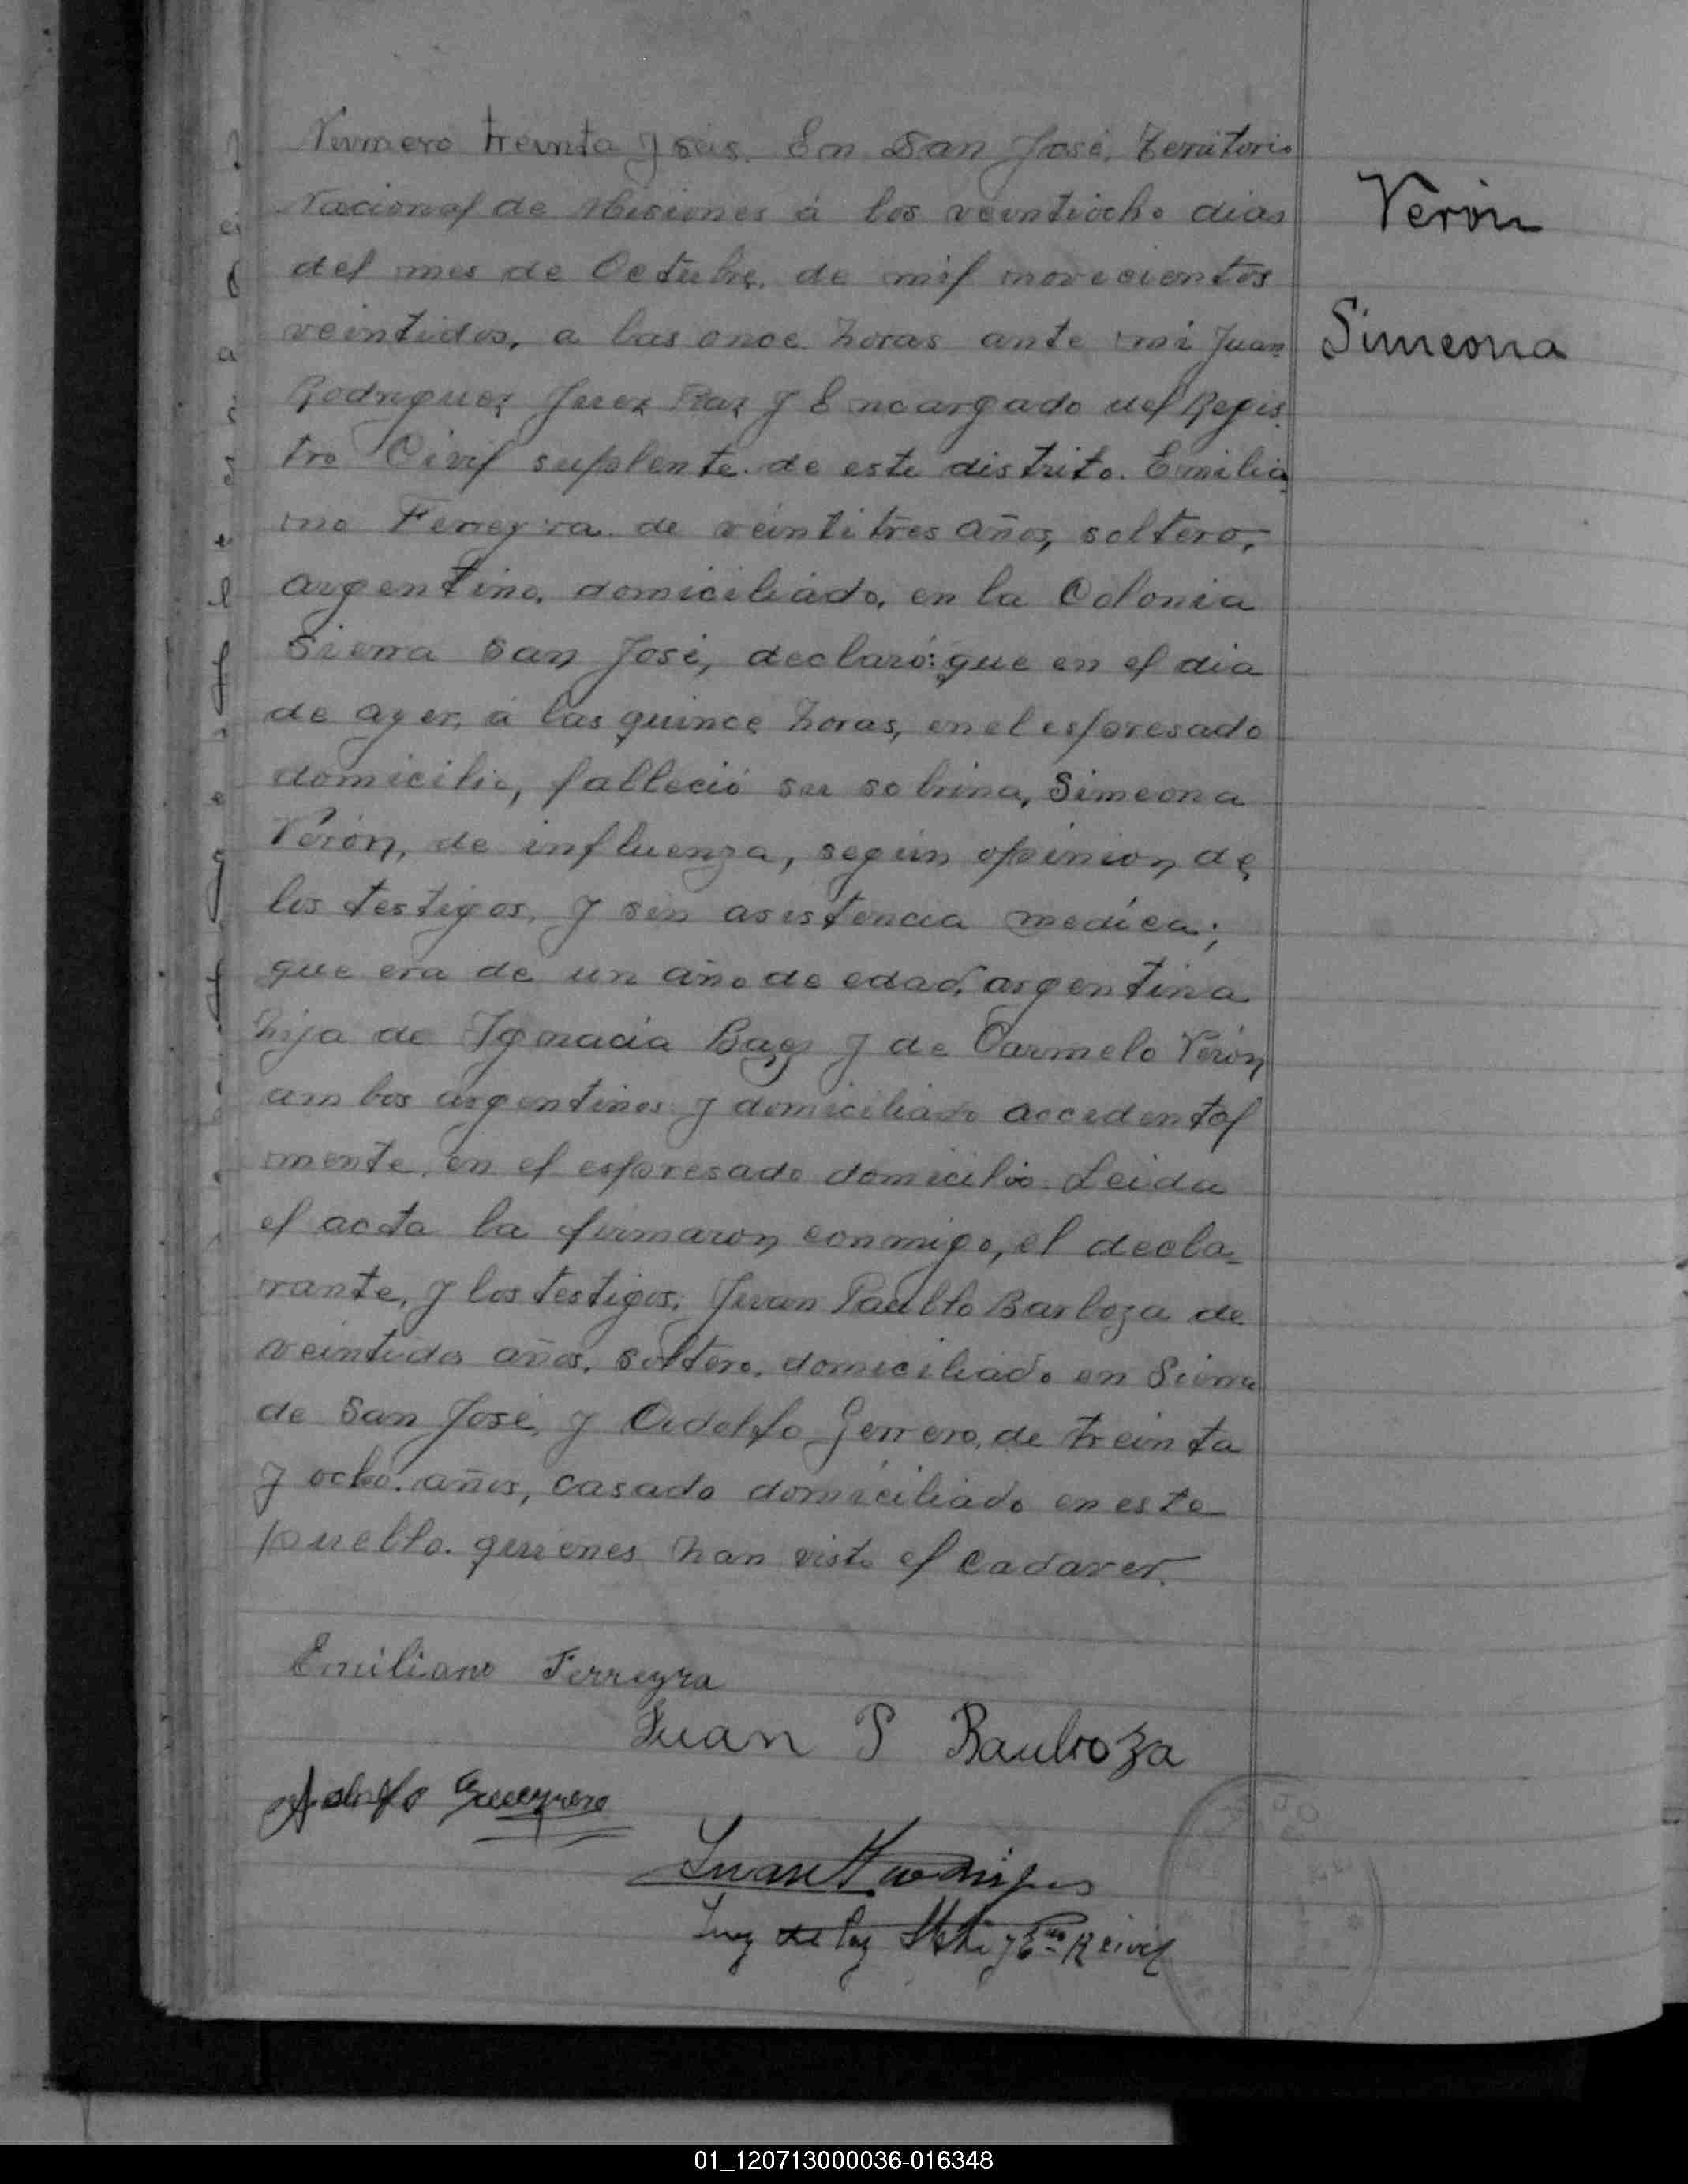 Numero treinta y seis. En San José, Territorio
Nacional de Misiones á los veintiocho dias
del mes de Octubre, de mil novecientos
veintidos, a las once horas ante mi Juan
Rodriguez Juez Paz y Encargado del Regis
tro Civil suplente de este distrito. Emilia
no Ferreyra de veintitres años, soltero,
argentino, domiciliado, en la Colonia
Sierra San José, declaró: que en el dia
de ayer, á las quince horas, en el espresado
domicilio, falleció su sobrina, Simeona
Verón, de influenza, según opinion de
los testigos, y sin asistencia medica;
que era de un año de edad, argentina
hija de Ignacia Baez y de Carmelo Verón
ambos argentinos y domiciliado accidental
mente, en el espresado domicilio. Leida
el acta la firmaron conmigo, el decla-
rante, y los testigos; Juan Paublo Barboza de
veintidos años, soltero, domiciliado en Sierra
de San José, y Adolfo Gerrero, de treinta
y ocho años, casado domiciliado en este
pueblo. quienes han visto el cadaver.
Verón
Simeona
Emiliano Ferreyra
Juan P Barboza
Adolfo Guerrero
Juan Rodrigues
Juez de Paz R Civil
01_120713000036-016348